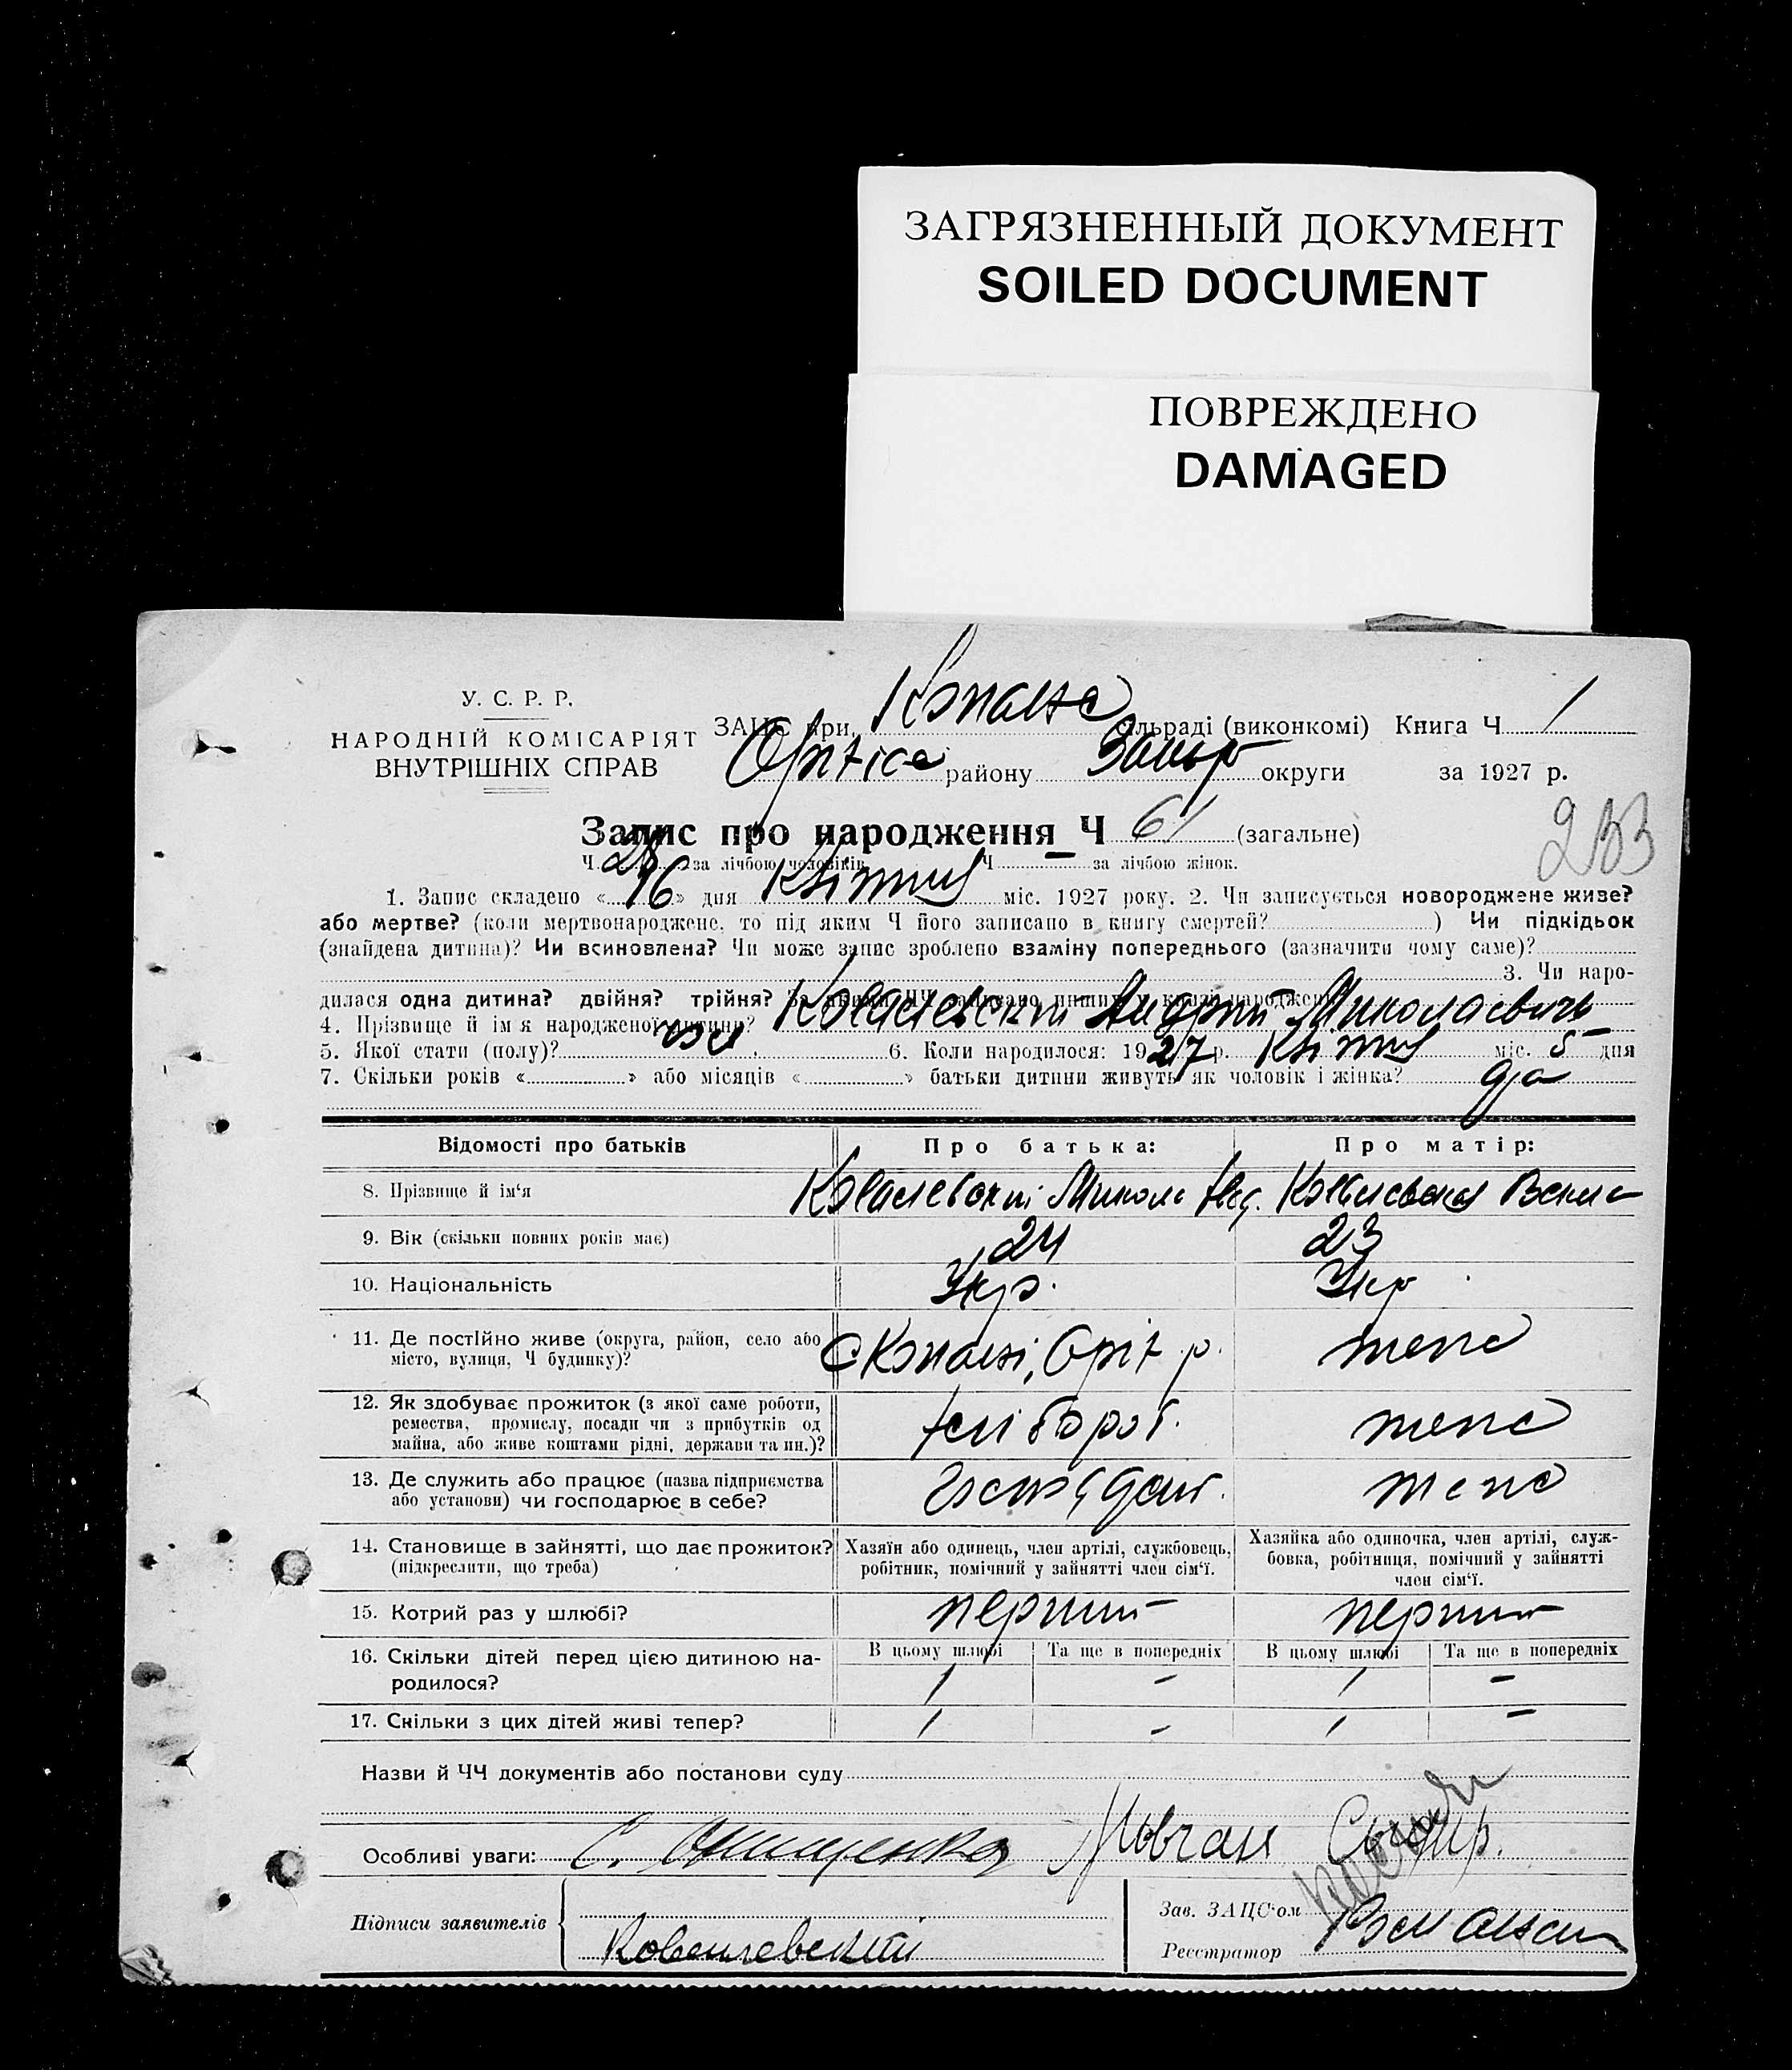 ЗАГРЯЗНЕННЫЙ ДОКУМЕНТ
SOILED DOCUMENT
ПОВРЕЖДЕНО
DAMAGED
У. С. Р. Р.
НАРОДНІЙ КОМІСАРІЯТ
ВНУТРІШНІХ СПРАВ
ЗАЦС при сільраді (виконкомі) Книга Ч 1
району округи за 1927 р.
Запис про народження Ч 61 (загальне)
253
Ч 28 за лічбою чоловіків Ч — за лічбою жінок.
1. Запис складено «16» дня Квітня міс. 1927 року. 2. Чи записується новороджене живе?
або мертве? (коли мертвонароджене, то під яким Ч його записано в книгу смертей? ) Чи підкідьок
(знайдена дитина)? Чи всиновлена? Чи може запис зроблено взаміну попереднього (зазначити чому саме)?
3. Чи наро-
дилася одна дитина? двійня? трійня? За якими ЧЧ записано инших у книзі народжень
4. Прізвище й ім'я народженої дитини? Ковалевський Андрій Миколаевичь
5. Якої стати (полу)? 6. Коли народилося: 1927 р. Квітня міс. 5 дня
7. Скільки років « » або місяців « » батьки дитини живуть як чоловік і жінка?
Відомості про батьків Про батька: Про матір:
8. Прізвище й ім'я Ковалевський Микола Ковалевська
9. Вік (скільки повних років має) 24 23
10. Національність Укр. Укр
11. Де постійно живе (округа, район, село або місто, вулиця, Ч будинку)? С Копані, Оріх р. тепс
12. Як здобуває прожиток (з якої саме роботи,
ремества, промислу, посади чи з прибутків од
майна, або живе коштами рідні, держави та ин.)? хлібороб. тепс
13. Де служить або працює (назва підприємства
або установи) чи господарює в себе? тепс
14. Становище в зайнятті, що дає прожиток?
(підкреслити, що треба)
Хазяїн або одинець, член артілі, службовець,
робітник, помічний у зайнятті член сім'ї.
Хазяйка або одиночка, член артілі, служ-
бовка, робітниця, помічний у зайнятті
член сім'ї.
15. Котрий раз у шлюбі? перший перший
16. Скільки дітей перед цією дитиною на-
родилося?
В цьому шлюбі Та ще в попередніх В цьому шлюбі Та ще в попередніх
1 — 1 —
17. Скільки з цих дітей живі тепер? 1 — 1 —
Назви й ЧЧ документів або постанови суду
Особливі уваги: С. Онищенко Мовчан
Підписи заявителів Ковалевський
Зав. ЗАЦС'ом
Реєстратор